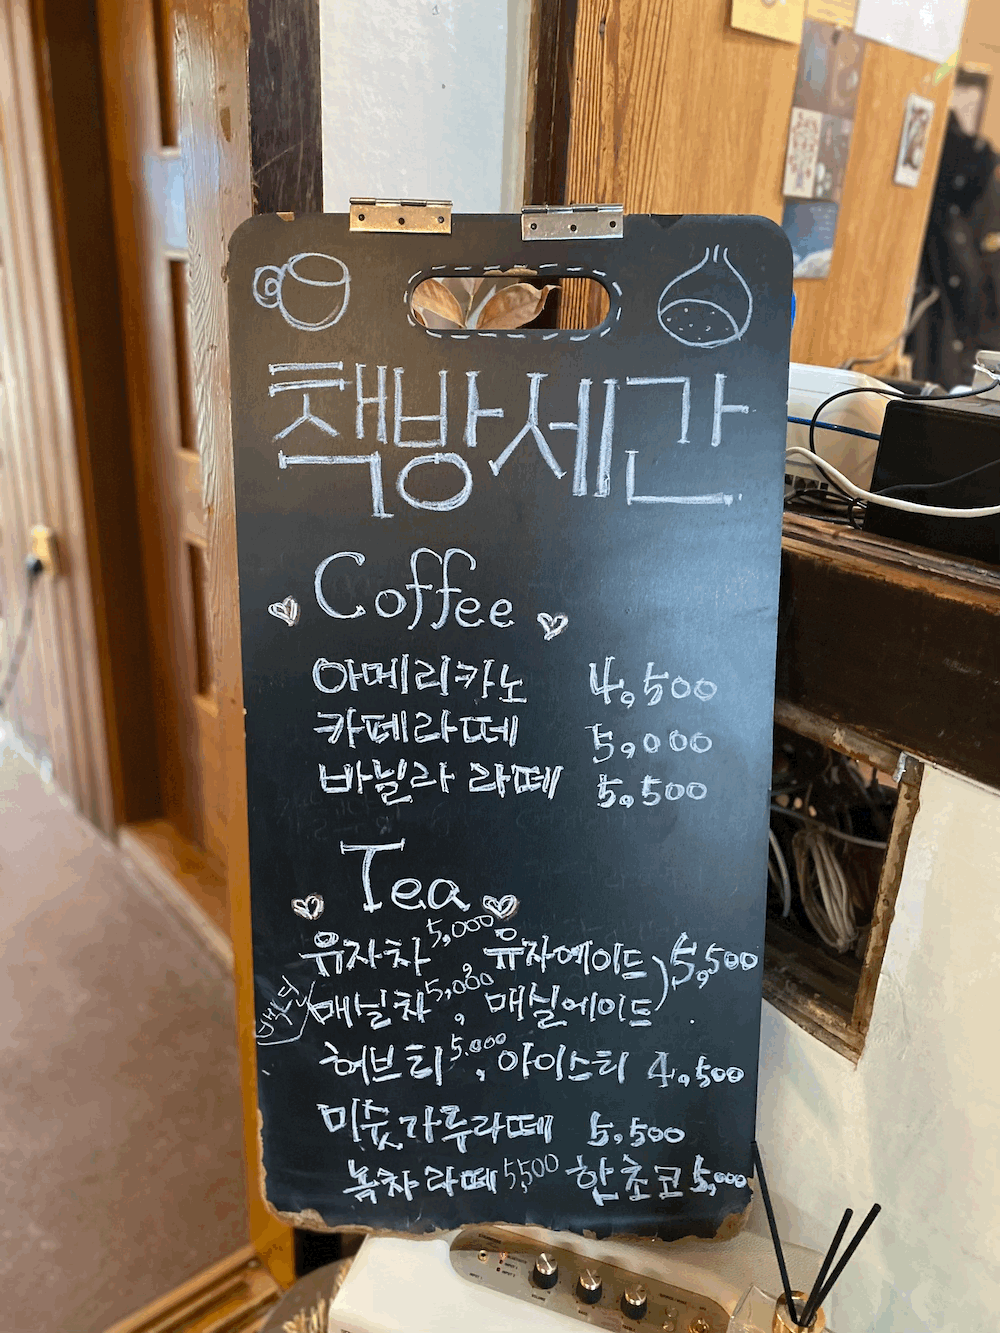 책방세간
Coffee
아메리카노 4,500
카페라떼 5,000
바닐라 라떼 5,500
Tea
유자차 5,000 유자에이드
매실차 5,000, 매실에이드 ) 5,500
허브티 5.000, 아이스티 4,500
미숫가루라떼 5,500
녹차라떼 5,500 핫초코 5,000